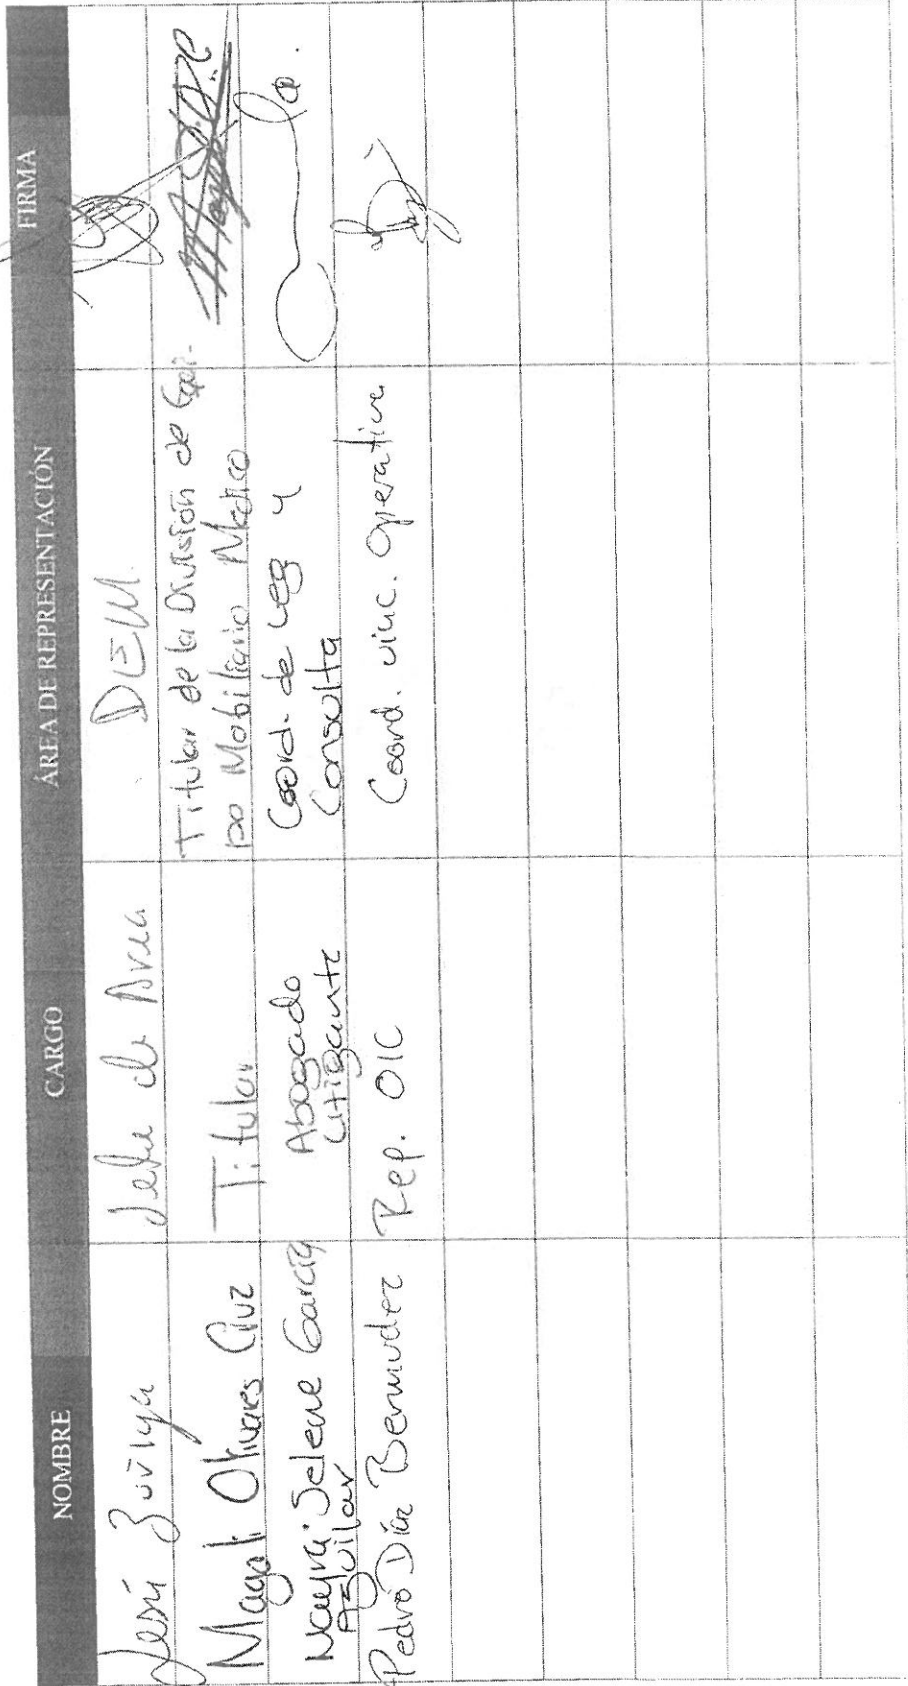 NOMBRE CARGO ÁREA DE REPRESENTACIÓN FIRMA
Jesús Zúñiga Jefe de Area DEM.
Magali Olivares Cruz Titular Titular de la División de Equi-
po Mobiliario Médico
Nayra Selene García Aguilar Abogado Litigante Coord. de Leg y
Consulta
Pedro Díaz Bermudez Rep. OIC Coord. vinc. Operativa